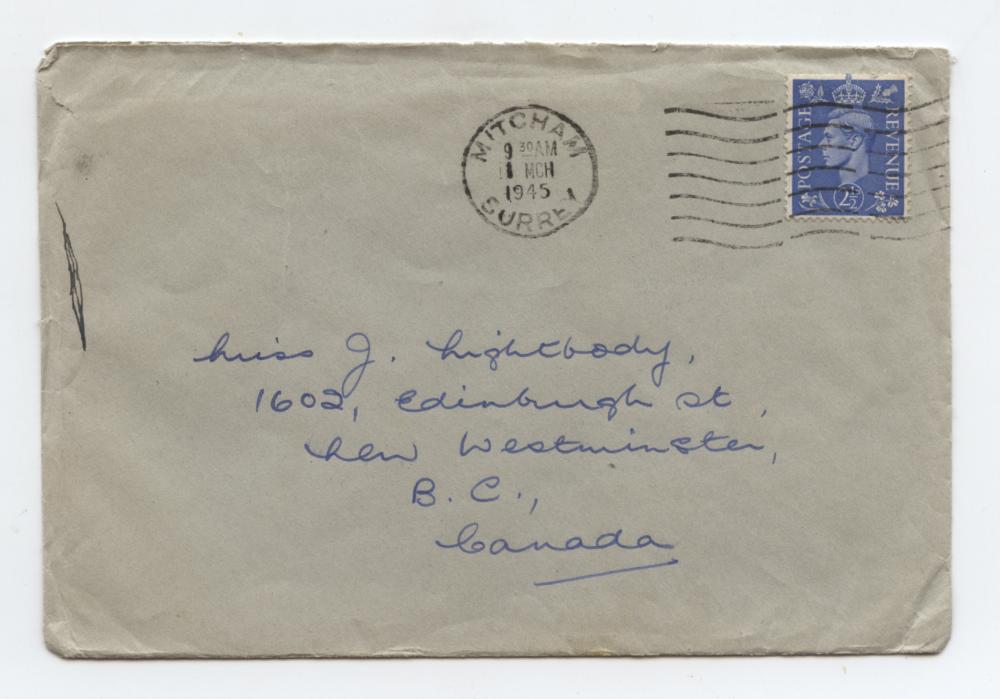 MITCHAM
9 30 AM
1 MCH
1945
SURREY
POSTAGE
REVENUE
2½
Miss J. Lightbody,
1602, Edinburgh St,
New Westminster,
B.C.,
Canada